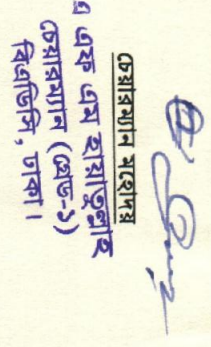 চেয়ারম্যান মহোদয়
এ এফ এম হায়াতুল্লাহ
চেয়ারম্যান (গ্রেড-১)
বিএডিসি, ঢাকা।